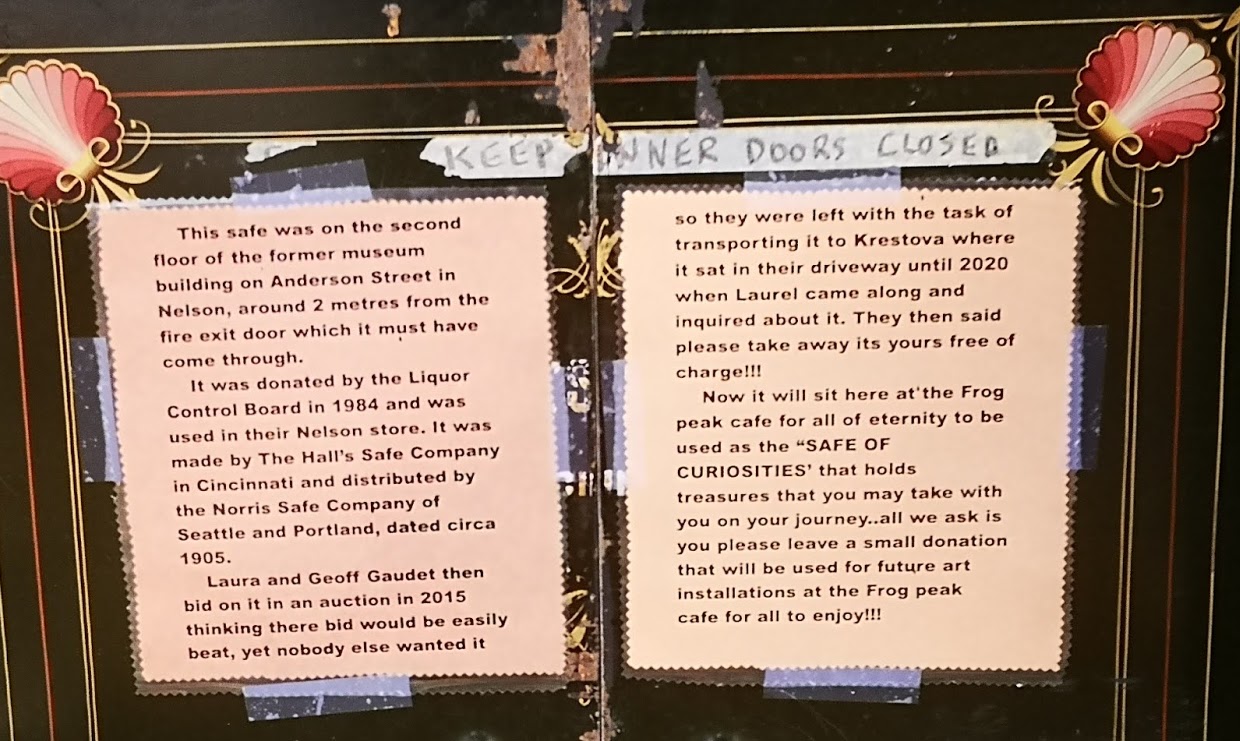 KEEP INNER DOORS CLOSED
This safe was on the second
floor of the former museum
building on Anderson Street in
Nelson, around 2 metres from the
fire exit door which it must have
come through.
It was donated by the Liquor
Control Board in 1984 and was
used in their Nelson store. It was
made by The Hall's Safe Company
in Cincinnati and distributed by
the Norris Safe Company of
Seattle and Portland, dated circa
1905.
Laura and Geoff Gaudet then
bid on it in an auction in 2015
thinking there bid would be easily
beat, yet nobody else wanted it
so they were left with the task of
transporting it to Krestova where
it sat in their driveway until 2020
when Laurel came along and
inquired about it. They then said
please take away its yours free of
charge!!!
Now it will sit here at the Frog
peak cafe for all of eternity to be
used as the “SAFE OF
CURIOSITIES’ that holds
treasures that you may take with
you on your journey..all we ask is
you please leave a small donation
that will be used for future art
installations at the Frog peak
cafe for all to enjoy!!!